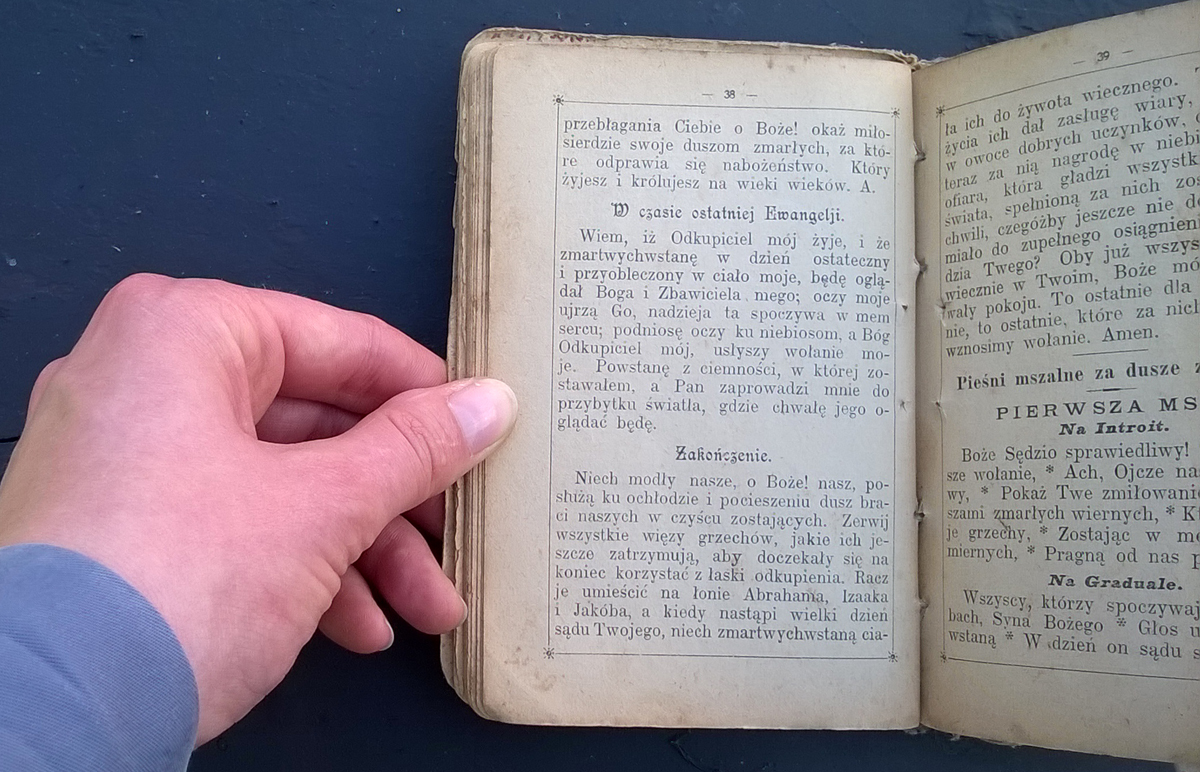 — 38 —
przebłagania Ciebie o Boże! okaż miło-
sierdzie swoje duszom zmarłych, za któ-
re odprawia się nabożeństwo. Który
żyjesz i królujesz na wieki wieków. A.
W czasie ostatniej Ewangelji.
Wiem, iż Odkupiciel mój żyje, i że
zmartwychwstanę w dzień ostateczny
i przyobleczony w ciało moje, będę oglą-
dał Boga i Zbawiciela mego; oczy moje
ujrzą Go, nadzieja ta spoczywa w mem
sercu; podniosę oczy ku niebiosom, a Bóg
Odkupiciel mój, usłyszy wołanie mo-
je. Powstanę z ciemności, w której zo-
stawałem, a Pan zaprowadzi mnie do
przybytku światła, gdzie chwałę jego o-
glądać będę.
Zakończenie.
Niech modły nasze, o Boże! nasz, po-
służą ku ochłodzie i pocieszeniu dusz bra-
ci naszych w czyścu zostających. Zerwij
wszystkie więzy grzechów, jakie ich je-
szcze zatrzymują, aby doczekały się na
koniec korzystać z łaski odkupienia. Racz
je umieścić na łonie Abrahama, Izaaka
i Jakóba, a kiedy nastąpi wielki dzień
sądu Twojego, niech zmartwychwstaną cia-
— 39 —
ła ich do żywota wiecznego.
życia ich dał zasługę wiary,
w owoce dobrych uczynków,
teraz za nią nagrodę w
ofiara, która gładzi
świata, spełnioną za nich
chwili, czegóżby jeszcze nie
miało do zupełnego
dzia Twego? Oby już
wiecznie w Twoim, Boże
wały pokoju. To ostatnie dla
nie, to ostatnie, które za
wznosimy wołanie. Amen.
Pieśni mszalne za dusze
PIERWSZA
Na Introit.
Boże Sędzio sprawiedliwy!
sze wołanie, * Ach, Ojcze
wy, * Pokaż Twe
szami zmarłych wiernych, *
je grzechy, * Zostając w
miernych, * Pragną od nas
Na Graduale.
Wszyscy, którzy
bach, Syna Bożego * Głos
wstaną * W dzień on sądu